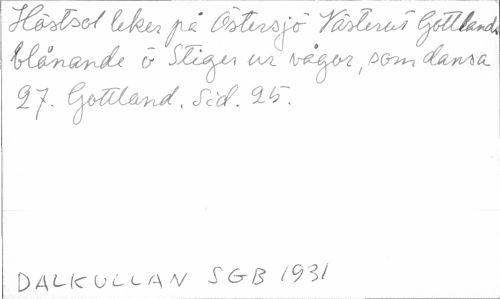 Höstsol leker på Östersjö Västerut Gottlands
blånande ö Stiger ur vågor, som dansa
27. Gottland. Sid. 25.
DALKULLAN SGB 1931